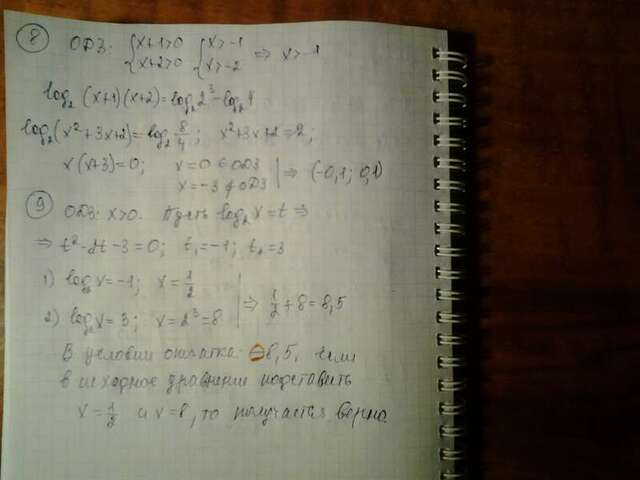 8 ОДЗ: { x+1>0 { x>-1 ⇒ x>-1
x+2>0 x>-2
log₂(x+1)(x+2)=log₂2³-log₂4
log₂(x²+3x+2)=log₂ 8/4; x²+3x+2=2;
x(x+3)=0; x=0 ∈ ОДЗ | ⇒ (-0,1; 0,1)
x=-3 ∉ ОДЗ
9 ОДЗ: x>0. Пусть log₂x=t ⇒
⇒ t²-2t-3=0; t₁=-1; t₂=3
1) log₂x=-1; x=1/2 | ⇒ 1/2+8=8,5
2) log₂x=3; x=2³=8
В условии опечатка: 8,5, если
в исходное уравнение подставить
x=1/2 и x=8, то получается верно.